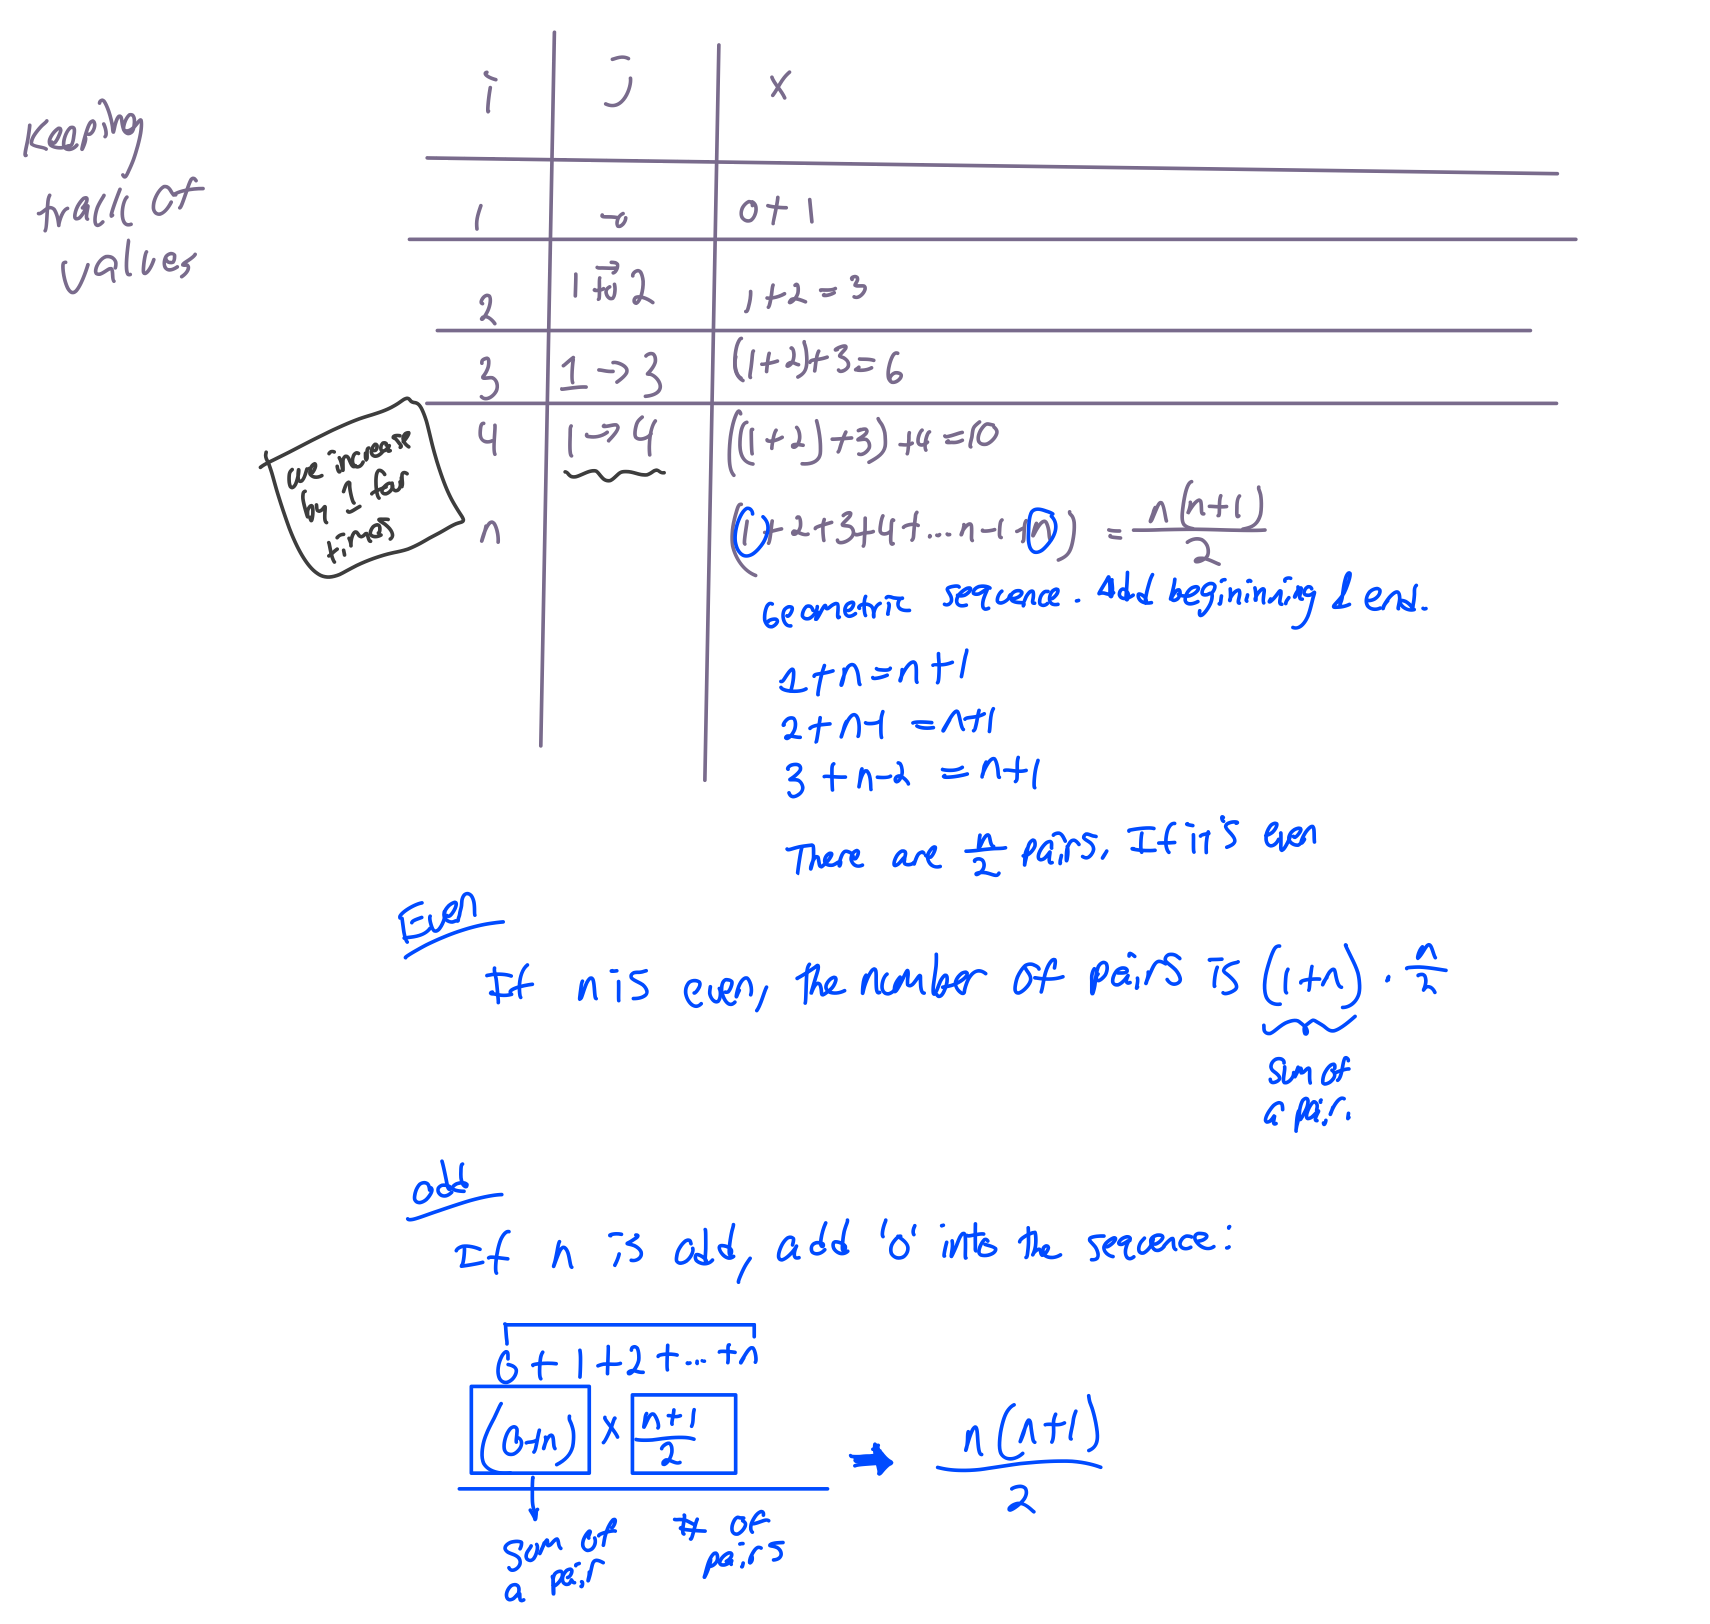 Keeping
track of
values
i j x
1 0 0 + 1
2 1 to 2 1 + 2 = 3
3 1 → 3 (1+2)+3 = 6
4 1 → 4 ((1+2)+3)+4 = 10
are increase
by 1 four
times
n (1+2+3+4+...n-1+n) = n(n+1)/2
Geometric sequence. Add beginining & end.
1+n = n+1
2+n-1 = n+1
3+n-2 = n+1
There are n/2 pairs, If it's even
Even
If n is even, the number of pairs is (1+n) · n/2
sum of
a pair.
odd
If n is odd, add '0' into the sequence:
0+1+2+...+n
(0+n) x n+1/2 → n(n+1)/2
Sum of
a pair
# of
pairs